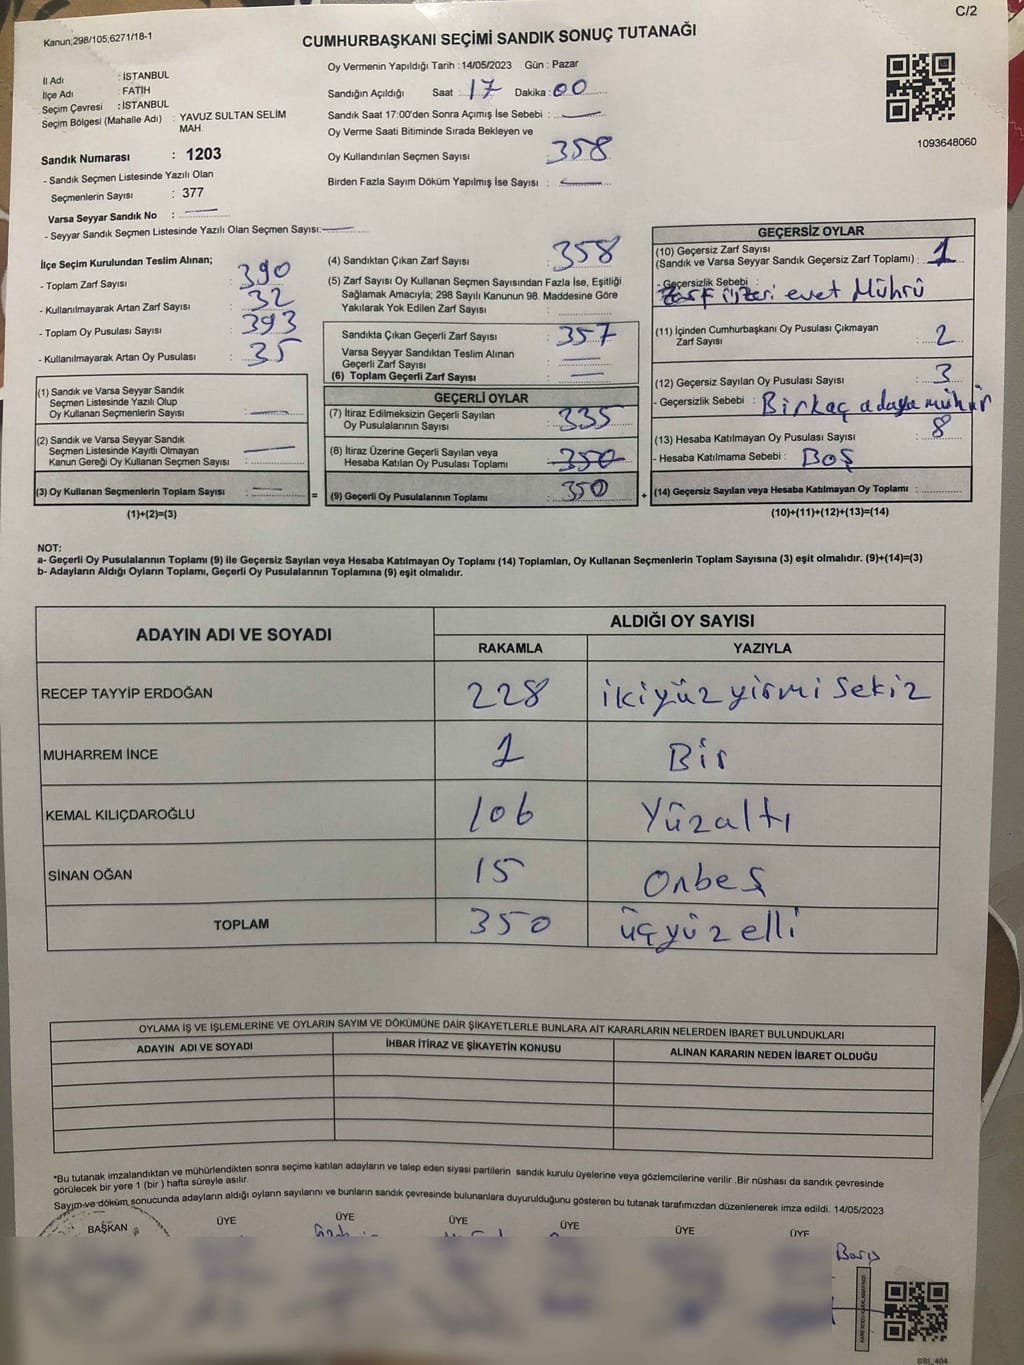 C/2
Kanun;298/105;6271/18-1
CUMHURBAŞKANI SEÇİMİ SANDIK SONUÇ TUTANAĞI
İl Adı : İSTANBUL
İlçe Adı : FATİH
Seçim Çevresi : İSTANBUL
Seçim Bölgesi (Mahalle Adı) : YAVUZ SULTAN SELİM MAH.
Sandık Numarası : 1203
- Sandık Seçmen Listesinde Yazılı Olan
Seçmenlerin Sayısı : 377
Varsa Seyyar Sandık No :
- Seyyar Sandık Seçmen Listesinde Yazılı Olan Seçmen Sayısı:
Oy Vermenin Yapıldığı Tarih : 14/05/2023 Gün : Pazar
Sandığın Açıldığı Saat : 17 Dakika : 00
Sandık Saat 17:00'den Sonra Açımış İse Sebebi :
Oy Verme Saati Bitiminde Sırada Bekleyen ve
Oy Kullandırılan Seçmen Sayısı : 358
Birden Fazla Sayım Döküm Yapılmış İse Sayısı :
1093648060
İlçe Seçim Kurulundan Teslim Alınan;
- Toplam Zarf Sayısı : 390
- Kullanılmayarak Artan Zarf Sayısı : 32
- Toplam Oy Pusulası Sayısı : 393
- Kullanılmayarak Artan Oy Pusulası : 35
(1) Sandık ve Varsa Seyyar Sandık
Seçmen Listesinde Yazılı Olup
Oy Kullanan Seçmenlerin Sayısı :
(2) Sandık ve Varsa Seyyar Sandık
Seçmen Listesinde Kayıtlı Olmayan
Kanun Gereği Oy Kullanan Seçmen Sayısı :
(3) Oy Kullanan Seçmenlerin Toplam Sayısı :
(1)+(2)=(3)
=
(4) Sandıktan Çıkan Zarf Sayısı : 358
(5) Zarf Sayısı Oy Kullanan Seçmen Sayısından Fazla İse, Eşitliği
Sağlamak Amacıyla; 298 Sayılı Kanunun 98. Maddesine Göre
Yakılarak Yok Edilen Zarf Sayısı :
Sandıkta Çıkan Geçerli Zarf Sayısı : 357
Varsa Seyyar Sandıktan Teslim Alınan
Geçerli Zarf Sayısı :
(6) Toplam Geçerli Zarf Sayısı :
GEÇERLİ OYLAR
(7) İtiraz Edilmeksizin Geçerli Sayılan
Oy Pusulalarının Sayısı : 335
(8) İtiraz Üzerine Geçerli Sayılan veya
Hesaba Katılan Oy Pusulası Toplamı : 350
(9) Geçerli Oy Pusulalarının Toplamı : 350
+
GEÇERSİZ OYLAR
(10) Geçersiz Zarf Sayısı
(Sandık ve Varsa Seyyar Sandık Geçersiz Zarf Toplamı) : 1
- Geçersizlik Sebebi :
Zarf üzeri evet Mührü
(11) İçinden Cumhurbaşkanı Oy Pusulası Çıkmayan
Zarf Sayısı : 2
(12) Geçersiz Sayılan Oy Pusulası Sayısı : 3
- Geçersizlik Sebebi : Birkaç adaya mühür
(13) Hesaba Katılmayan Oy Pusulası Sayısı : 8
- Hesaba Katılmama Sebebi : BOŞ
(14) Geçersiz Sayılan veya Hesaba Katılmayan Oy Toplamı :
(10)+(11)+(12)+(13)=(14)
NOT:
a- Geçerli Oy Pusulalarının Toplamı (9) ile Geçersiz Sayılan veya Hesaba Katılmayan Oy Toplamı (14) Toplamları, Oy Kullanan Seçmenlerin Toplam Sayısına (3) eşit olmalıdır. (9)+(14)=(3)
b- Adayların Aldığı Oyların Toplamı, Geçerli Oy Pusulalarının Toplamına (9) eşit olmalıdır.
ADAYIN ADI VE SOYADI
ALDIĞI OY SAYISI
RAKAMLA YAZIYLA
RECEP TAYYİP ERDOĞAN 228 ikiyüz yirmi sekiz
MUHARREM İNCE 1 Bir
KEMAL KILIÇDAROĞLU 106 Yüzaltı
SİNAN OĞAN 15 Onbeş
TOPLAM 350 üçyüz elli
OYLAMA İŞ VE İŞLEMLERİNE VE OYLARIN SAYIM VE DÖKÜMÜNE DAİR ŞİKAYETLERLE BUNLARA AİT KARARLARIN NELERDEN İBARET BULUNDUKLARI
ADAYIN ADI VE SOYADI İHBAR İTİRAZ VE ŞİKAYETİN KONUSU ALINAN KARARIN NEDEN İBARET OLDUĞU
*Bu tutanak imzalandıktan ve mühürlendikten sonra seçime katılan adayların ve talep eden siyasi partilerin sandık kurulu üyelerine veya gözlemcilerine verilir .Bir nüshası da sandık çevresinde
görülecek bir yere 1 (bir ) hafta süreyle asılır.
Sayım ve döküm sonucunda adayların aldığı oyların sayılarını ve bunların sandık çevresinde bulunanlara duyurulduğunu gösteren bu tutanak tarafımızdan düzenlenerek imza edildi. 14/05/2023
BAŞKAN ÜYE ÜYE ÜYE ÜYE ÜYE ÜYE
Barış
SBİ_404